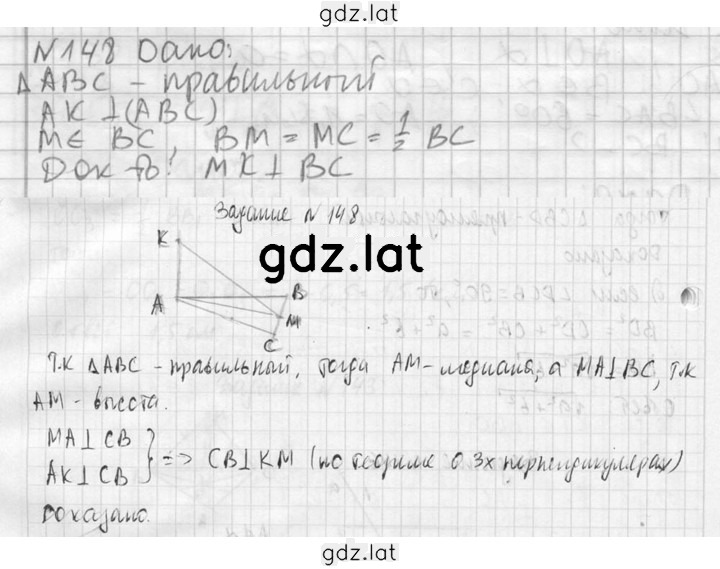 gdz.lat
N148 Дано:
△ABC - правильный
AK ⊥ (ABC)
M ∈ BC, BM = MC = 1/2 BC
Док-ть: MK ⊥ BC
Задание N148
K
gdz.lat
A B
M
C
Т.к △ABC - правильный, тогда AM - медиана, а MA⊥BC, т.к
AM - высота.
MA⊥CB
AK⊥CB } => CB⊥KM (по теореме о 3х перпендикулярах)
Доказано.
gdz.lat